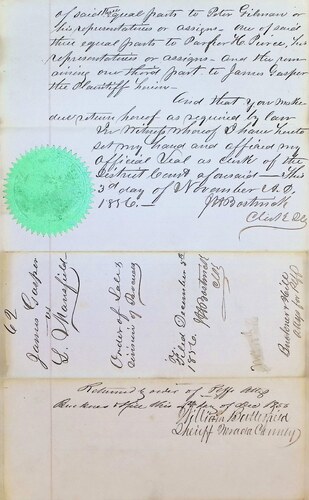 of said three equal parts to Peter Gilman or
his representatives or assigns. one of said
three equal parts to Parker H. Pierce, his
representatives or assigns - And the rem
aining one third part to James Casper
the Plaintiff herein -
And that you make
due return hereof as required by law
In Witness whereof I have hereto
set my hand and affixed my
official Seal as clerk of the
District Court aforesaid - This
3d day of November A.D.
1856. - J H Bostwick
Clerk
62
James Casper
vs
S. Mansfield
Order of Sale &
Filed December 5th
1856.
J H Bostwick
Clk
Buckner & Hill
Attys for Plff
Returned by order of Plffs Attys
Buckner & Hill this day of Dec 1856
William Butterfield
Sheriff